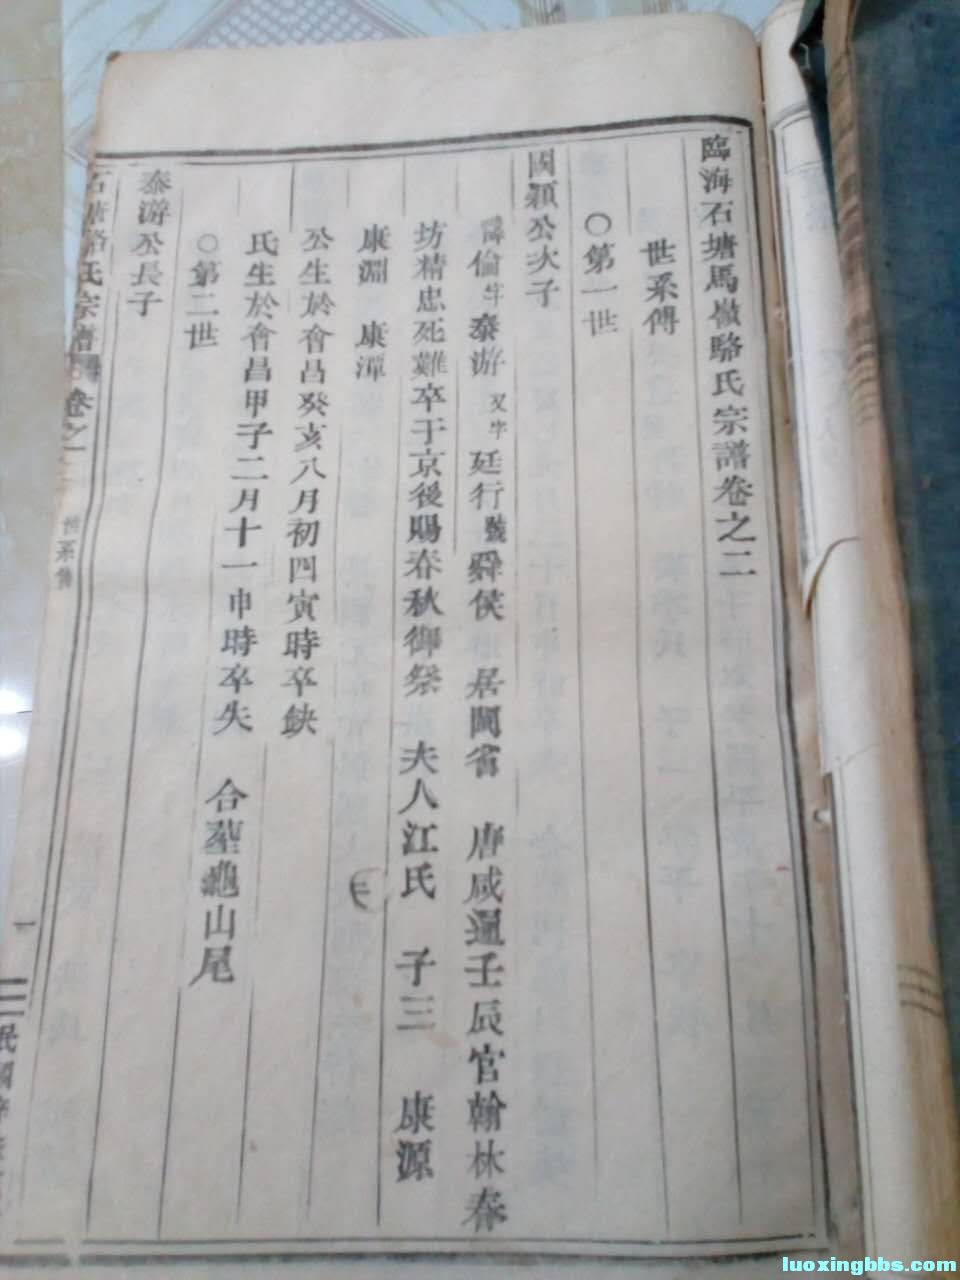 臨海石塘馬嶺駱氏宗譜卷之二
世系傳
○第一世
國穎公次子
諱倫字泰游又字廷行號舜侯 居閩省 唐咸通壬辰官翰林春
坊精忠死難卒于京後賜春秋御祭 夫人江氏 子三 康源
康淵 康潭
公生於會昌癸亥八月初四寅時卒缺
氏生於會昌甲子二月十一申時卒失 合塟龜山尾
○第二世
泰游公長子
石塘駱氏宗譜 卷之二 世系傳 一 民國
luoxingbbs.com